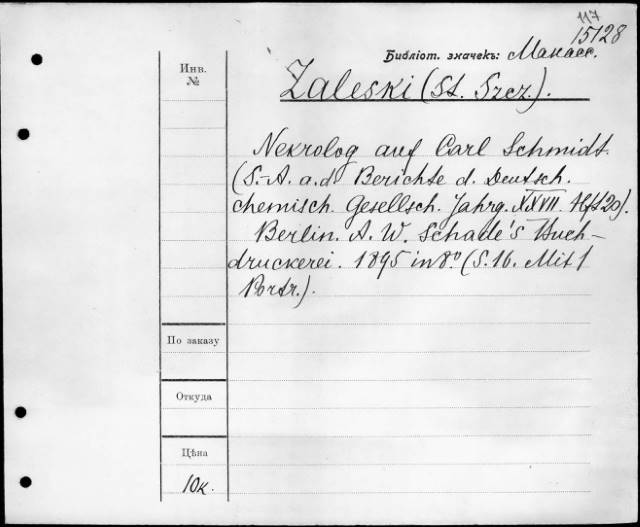 117
15128
Библіот. значекъ:
Инв.
№
Zaleski (St. Szcz.).
Nekrolog auf Carl Schmidt.
(S.-A. a.d. Berichte d. Deutsch.
chemisch. Gesellsch. Jahrg. XXVII. Hft 20).
Berlin. A. W. Schade's Buch-
druckerei. 1895 in 8.º (S. 16. Mit 1
Portr.).
По заказу
Откуда
Цѣна
10к.